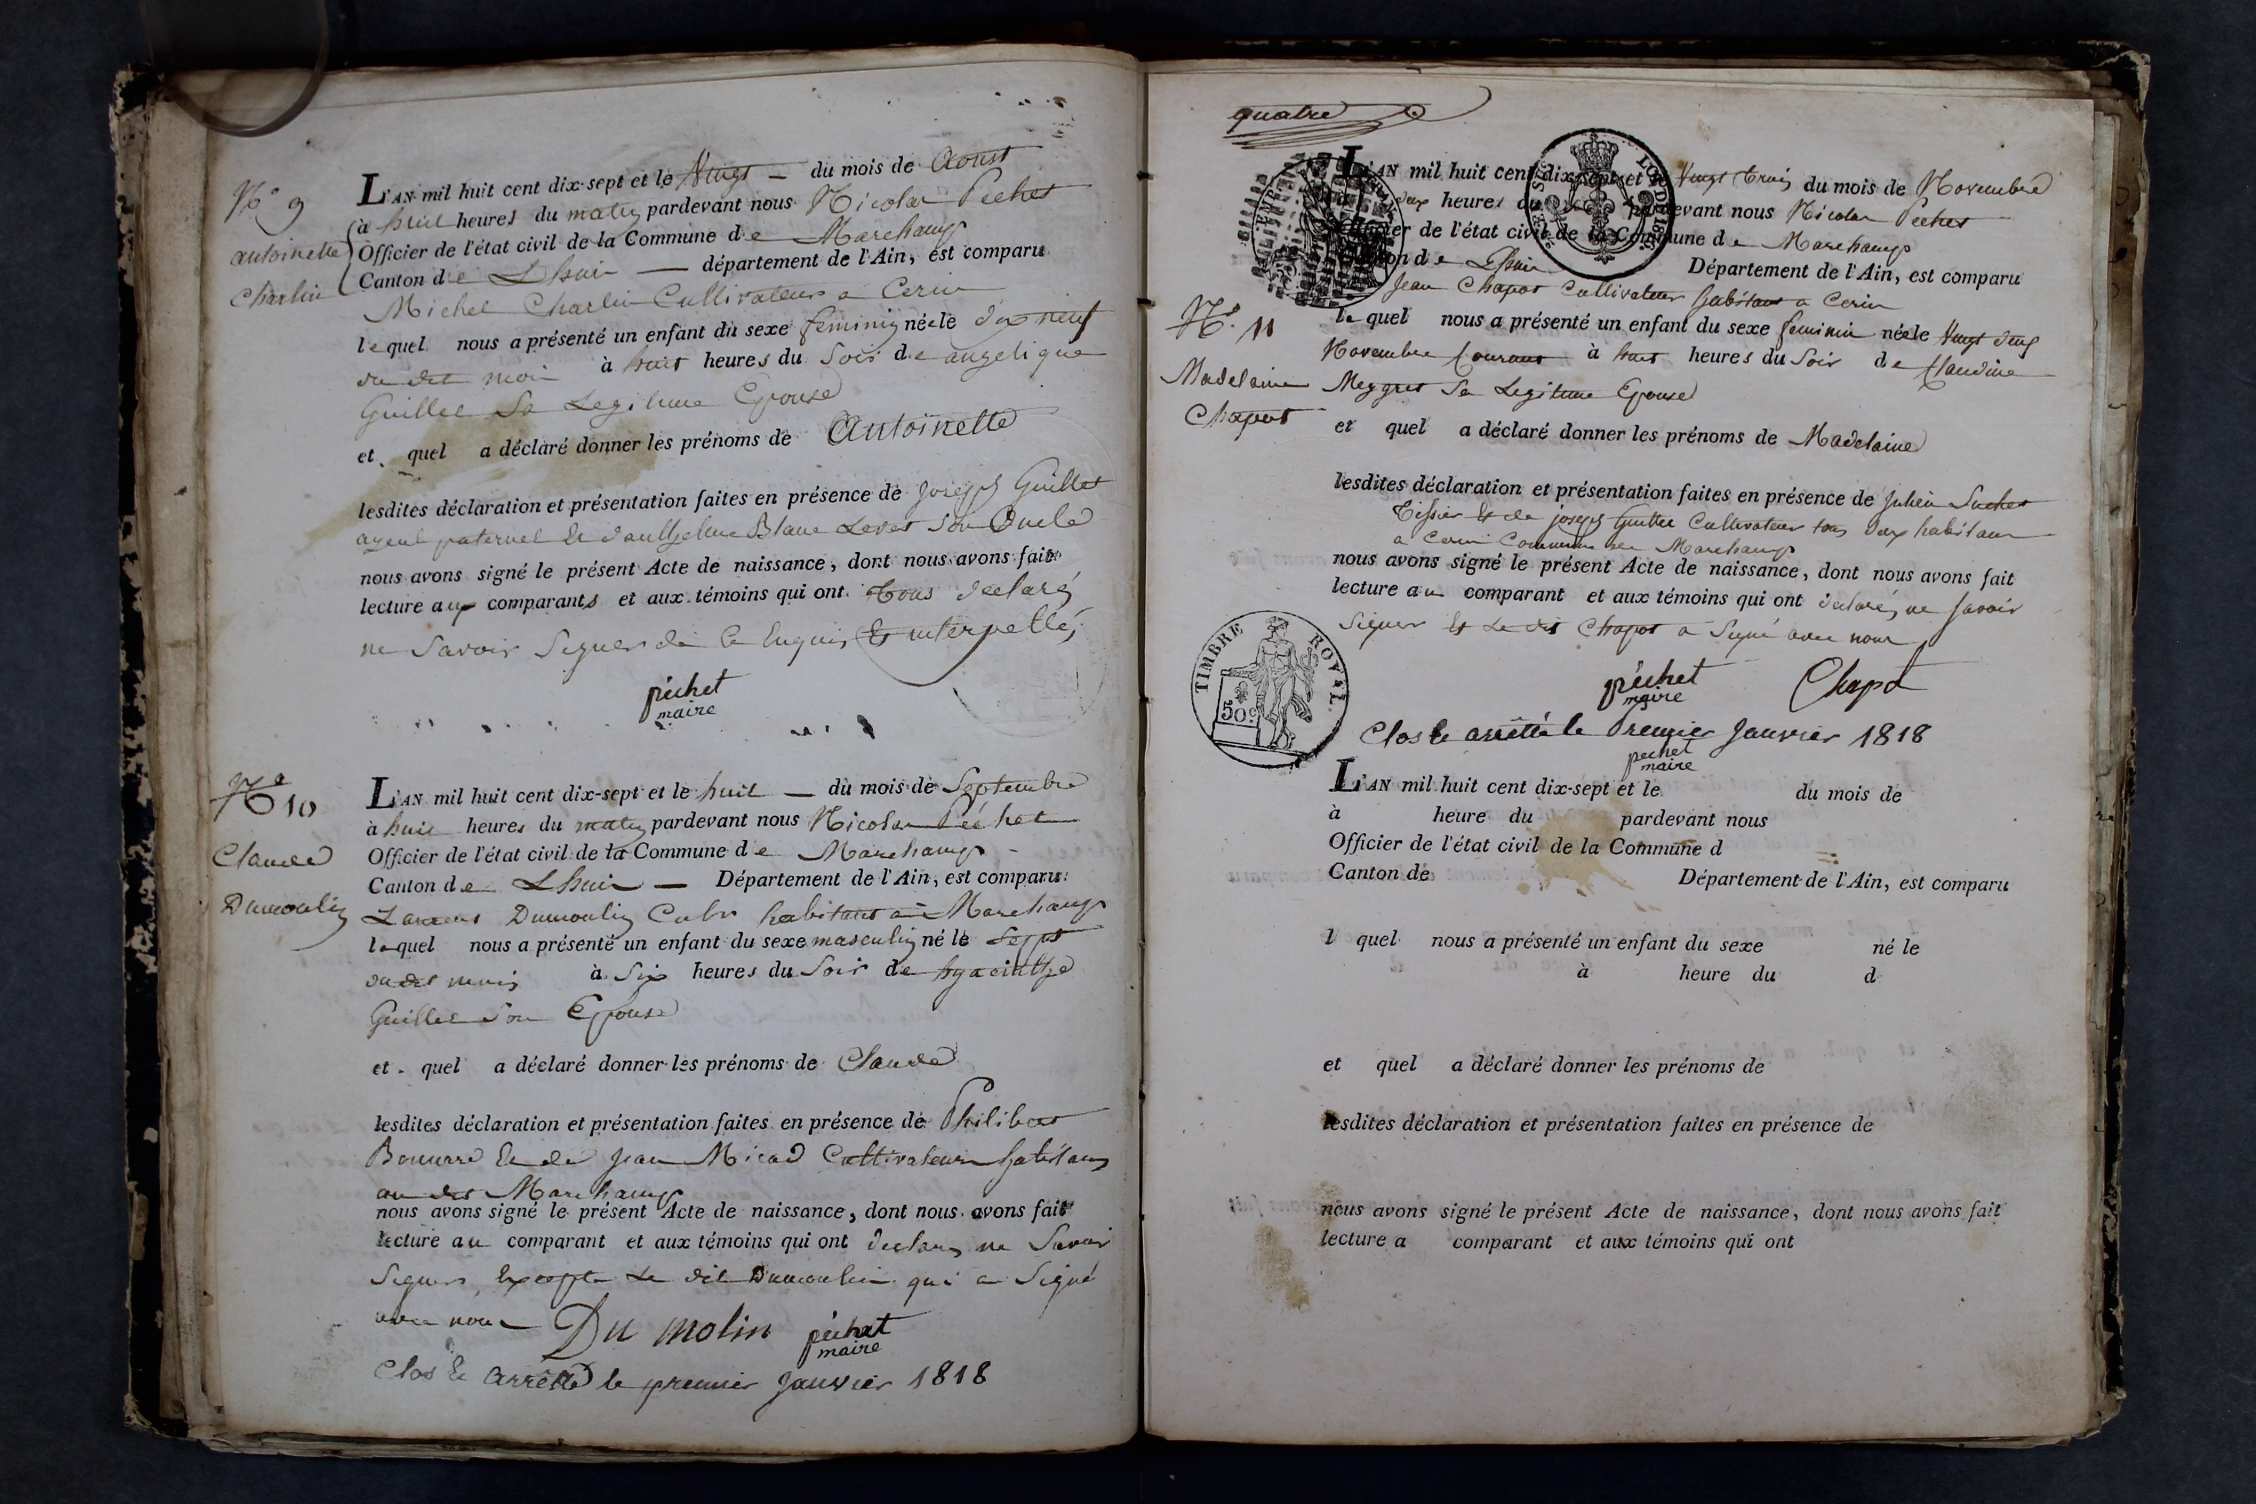 N.° 9
antoinette
Charlin
L'AN mil huit cent dix-sept et le Vingt — du mois de Aoust
à huit heures du matin pardevant nous Nicolas Pechet
Officier de l'état civil de la Commune de Marchamp
Canton de Lhuis — département de l'Ain, est comparu
Michel Charlin Cultivateur a Cerin
lequel nous a présenté un enfant du sexe feminin née le dix neuf
du dit mois à huit heures du Soir de angelique
Guillet Sa Legitime Epouse
et quel a déclaré donner les prénoms de Antoinette
lesdites déclaration et présentation faites en présence de joseph Guillet
ayeul paternel et Blanc Levet Son Oncle
nous avons signé le présent Acte de naissance, dont nous avons fait
lecture aux comparants et aux témoins qui ont Tous declaré
ne Savoir Signer de ce Enquis Et interpellé,
péchet
maire
N° 10
Claude
Dumoulin
L'AN mil huit cent dix-sept et le huit — du mois de Septembre
à huit heures du matin pardevant nous Nicolas Péchet
Officier de l'état civil de la Commune de Marchamp
Canton de Lhuis — Département de l'Ain, est comparu
Laurent Dumoulin Culr habitant a Marchamp
lequel nous a présenté un enfant du sexe masculin né le Sept
du dit mois à Six heures du Soir de hyacinthe
Guillet Son Epouse
et quel a déclaré donner les prénoms de Claude
lesdites déclaration et présentation faites en présence de Philibert
Et de Jean Micod Cultivateurs habitans
au dit Marchamp
nous avons signé le présent Acte de naissance, dont nous avons fait
lecture au comparant et aux témoins qui ont declaré ne Savoir
Signer, Excepte Le dit Dumoulin qui a Signé
avec nous Du molin péchet
maire
Clos Et Arrêté le premier Janvier 1818
quatre
L'AN mil huit cent dix-sept et le Vingt trois du mois de Novembre
à dix heures du pardevant nous Nicolas Pechet
Officier de l'état civil de la Commune de Marchamp
Canton de Lhuis Département de l'Ain, est comparu
Jean Chapot Cultivateur habitant a Cerin
N.° 11
Madelaine
Chapot
lequel nous a présenté un enfant du sexe feminin née le Vingt deux
Novembre Courant à huit heures du Soir de Claudine
Meygret Sa Legitime Epouse
et quel a déclaré donner les prénoms de Madelaine
lesdites déclaration et présentation faites en présence de Julien Suchet
Tissier Et de joseph Guillet Cultivateur tous deux habitans
a Cerin Commune de Marchamp
nous avons signé le présent Acte de naissance, dont nous avons fait
lecture au comparant et aux témoins qui ont declaré ne Savoir
Signer Et Le dit Chapot a Signé avec nous
TIMBRE ROYAL
50c
péchet
maire
Chapot
Clos Et arrêtté le Premier Janvier 1818
pechet
maire
L'AN mil huit cent dix-sept et le du mois de
à heure du pardevant nous
Officier de l'état civil de la Commune d
Canton de Département de l'Ain, est comparu
l quel nous a présenté un enfant du sexe né le
à heure du d
et quel a déclaré donner les prénoms de
lesdites déclaration et présentation faites en présence de
nous avons signé le présent Acte de naissance, dont nous avons fait
lecture a comparant et aux témoins qui ont